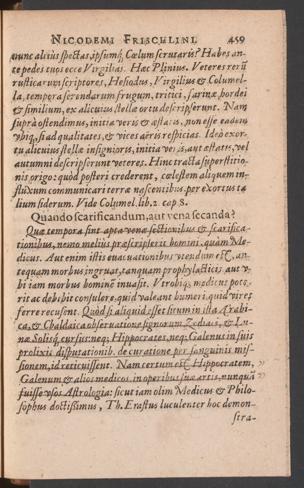 NICODEMI FRISCHLINI. 459
nunc altius spectas, ipsumq́; Cœlum scrutaris? Habes an-
te pedes tuos ecce Virgilias. Hæc Plinius. Veteres rerū
rusticarum scriptores, Hesiodus, Virgilius & Columel-
la, tempora serendarum frugum, tritici, farinæ, hordei
& similium, ex alicuius stellæ ortu descripserunt. Nam
suprà ostendimus, initia veris & æstatis, non esse eadem
vbiq́;, si ad qualitates, & vices aëris respicias. Ideò exor-
tu alicuius stellæ insignioris, initia veris, aut æstatis, vel
autumni descripserunt veteres. Hinc tracta superstitio-
nis origo: quòd posteri crederent, cælestem aliquem in-
fluxum communicari terræ nascentibus, per exortus ta
lium siderum. Vide Columel. lib. 2. cap 8.
Quando scarificandum, aut vena secanda?
Quæ tempora sint apta venæ sectionibus & scarifica-
tionibus, nemo meliùs præscripserit homini, quàm Me-
dicus. Aut enim istis euacuationibus vtendum est, an-
tequam morbus ingruat, tanquam prophylacticis aut v-
bi iam morbus hominē inuasit. Vtrobiq́; medicus pote-
rit ac debebit consulere, quid valeant humeri, quid vires
ferre recusent. Quòd si aliquid esset situm in ista Arabi-
ca, & Chaldaica obseruatione signorum Zodiaci, & Lu-
næ Solisq́; cursu: neq; Hippocrates, neq; Galenus in suis
prolixis disputationib. de curatione per sanguinis mis-
sionem, id reticuissent. Nam certum est Hippocratem,
Galenum & alios medicos, in operibus suæ artis, nunquā
fuisse vsos Astrologia: sicut iam olim Medicus & Philo-
sophus doctissimus, Th. Erastus luculenter hoc demon-
stra-